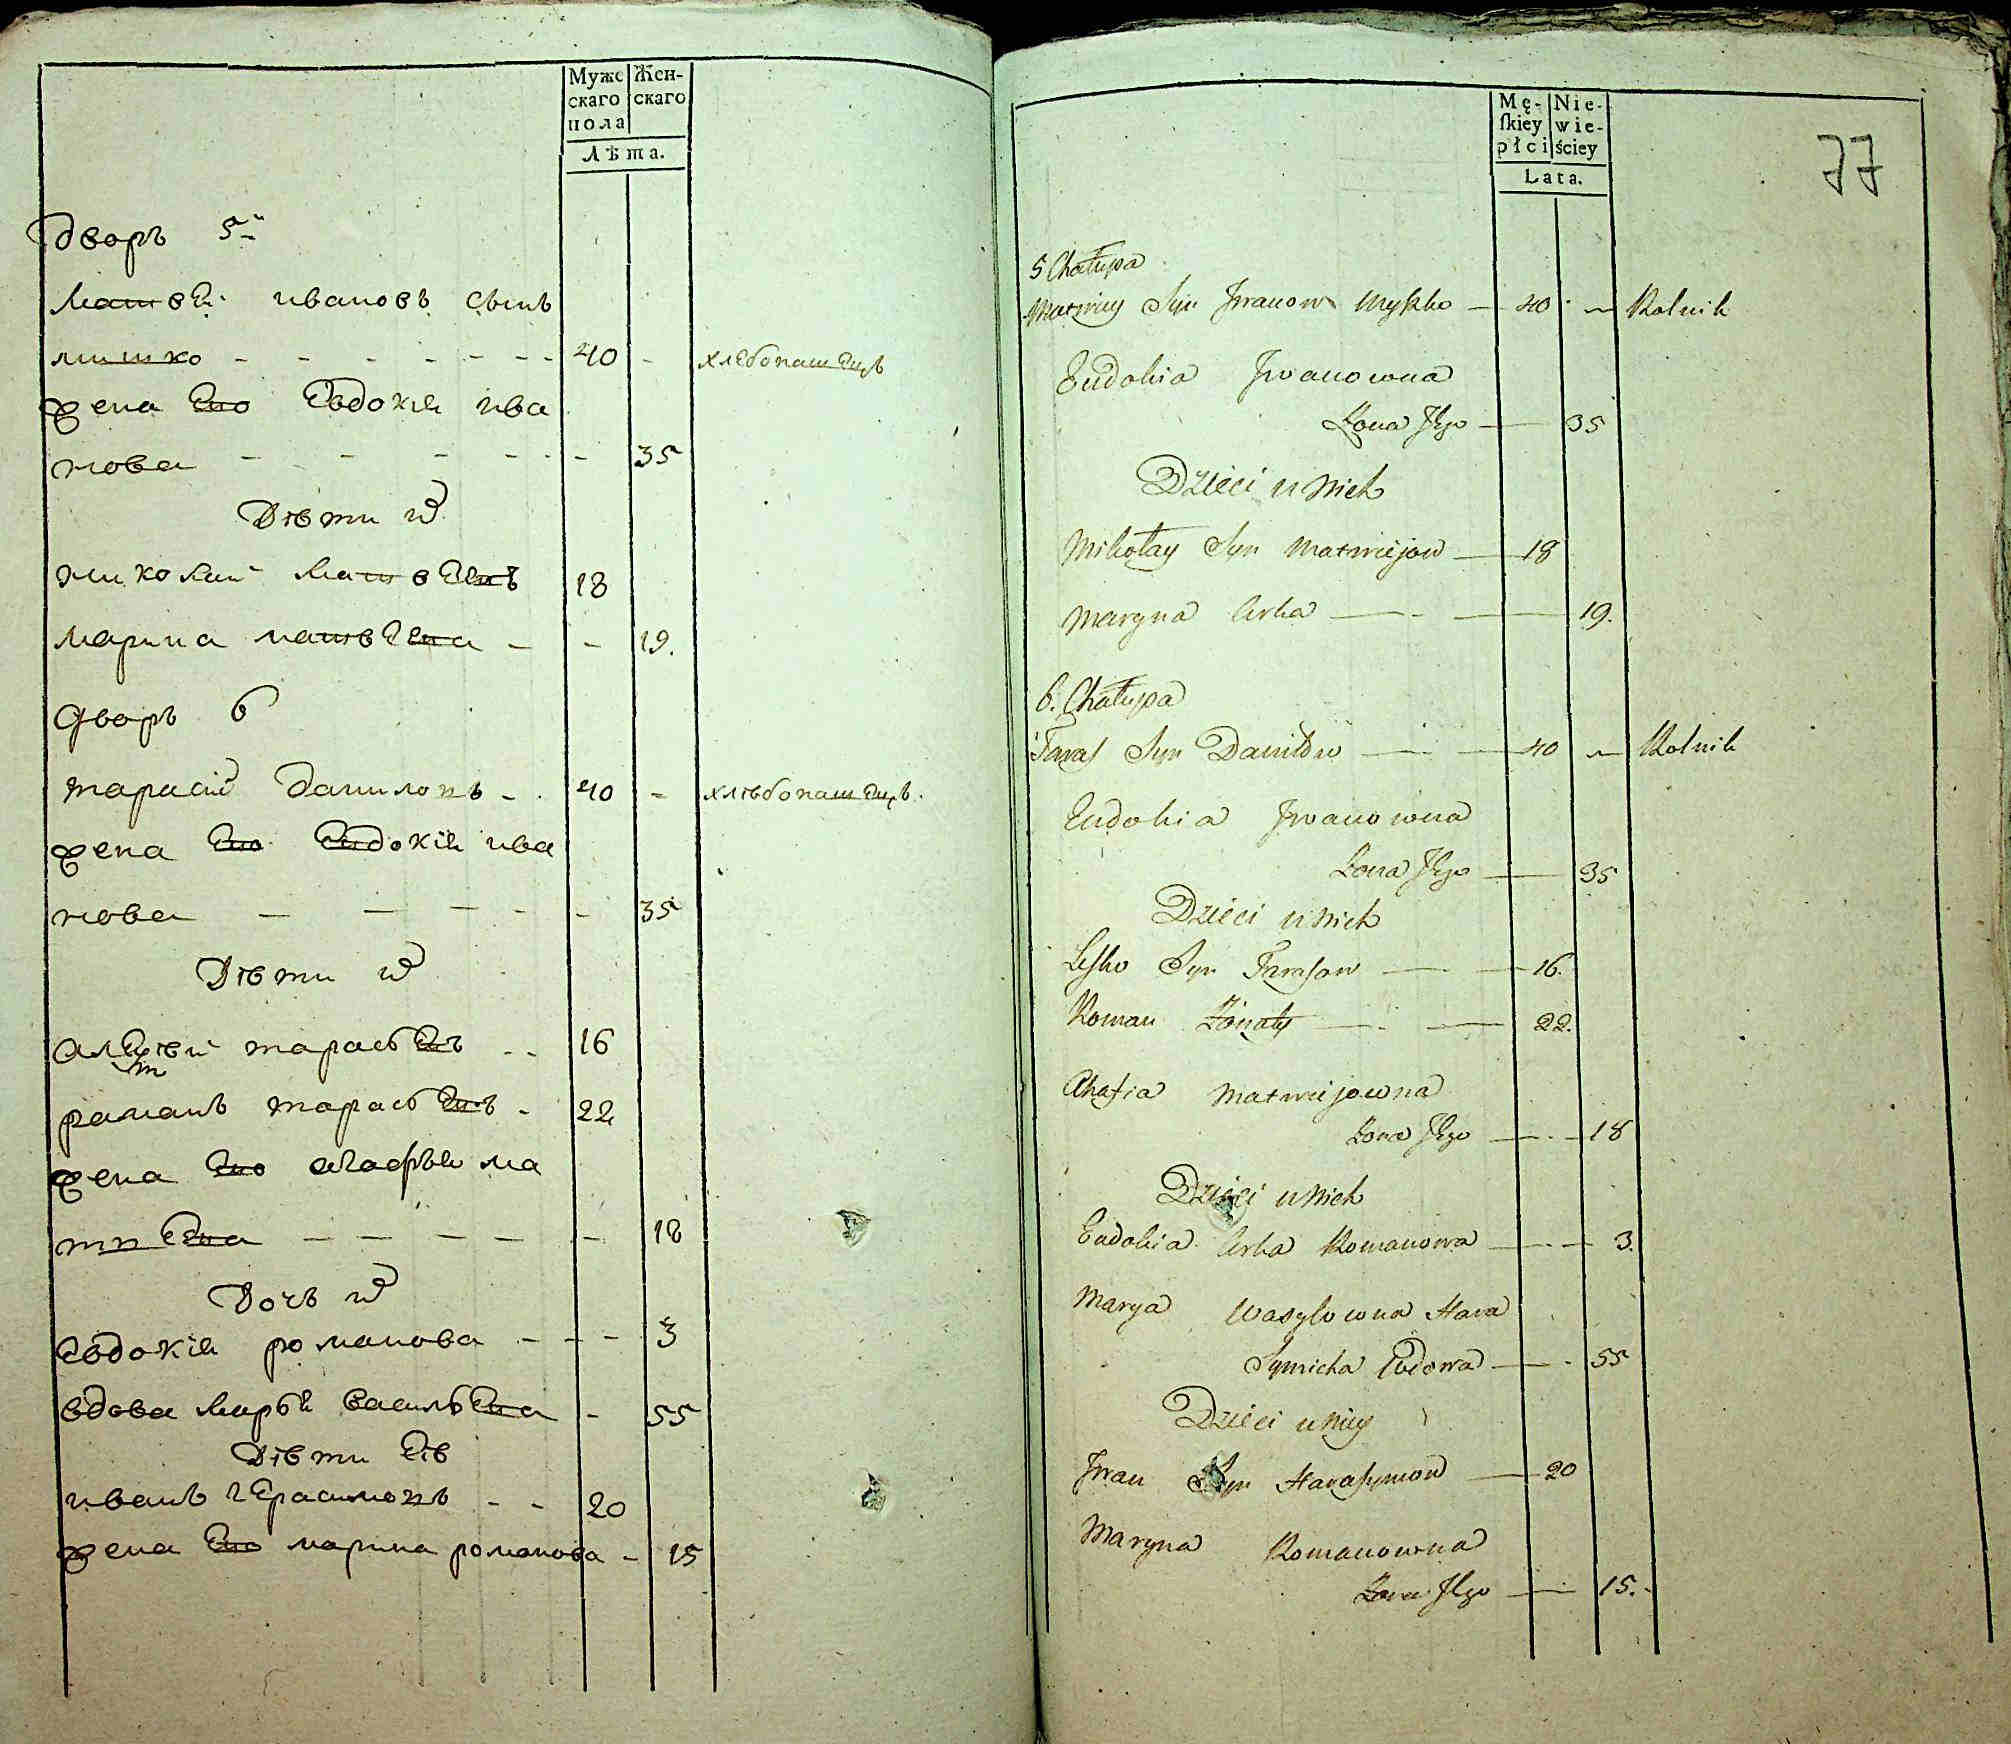 Мужс
скаго
пола
Жен-
скаго
Лѣта.
Дворъ 5й
Матвей ивановъ сынъ
мишко - - - - - - 40 - хлебопашецъ
жена Его Евдокия ива
нова - - - - - - 35
Дѣти их
николай Матвеевъ 18
марина матвеева - - 19.
Дворъ 6
тарасий данилопъ - 40 - хлѣбопашецъ.
жена Его Евдокия ива
нова - - - - - 35
Дѣти их
алексѣй тарасьевъ - - 16
раманъ тарасьевъ - 22
жена Его агафья ма
твеева - - - - - 18
Дочь их
Евдокия романова - - - 3
вдова марья васильева - 55
Дѣти Еѣ
иванъ герасимовъ - - 20
жена Его марина романова - 15
Mę-
ſkiey
płci
Nie-
wie-
ściey
Lata.
77
5 Chałupa
Matwiey Syn Iwanow Myszko - 40 - Rolnik
Eudokia Iwanowna
Żona Jego - 35
Dzieci u Nich
Mikołay Syn Matwiejow - 18
Maryna Crka - - 19.
6. Chałupa
Taras Syn Daniłow - 40 - Rolnik
Eudokia Iwanowna
Żona Jego - 35
Dzieci u Nich
Leſko Syn Taraſow - 16.
Roman Żonaty - 22.
Ahafia Matwiejowna
Żona Jego - 18
Dzieci u Nich
Eudokia Crka Romanowa - 3.
Marya Wasylowna Hara
Symicha Wdowa - 55
Dzieci u Niey
Iwan Syn Haraſymow - 20
Maryna Romanowna
Żona Jego - 15.